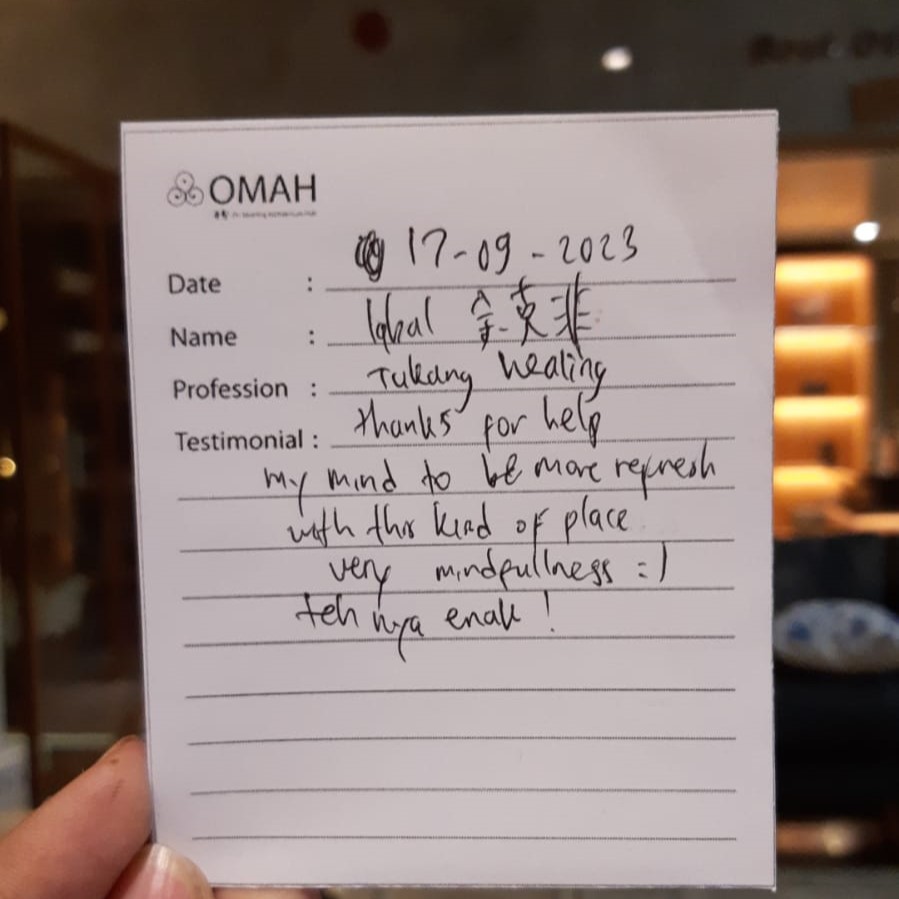 OMAH
Date : 17-09-2023
Name : Iqbal 余英非
Profession : Tukang healing
Testimonial : thanks for help
my mind to be more refresh
with this kind of place
very mindfullness :)
teh nya enak !